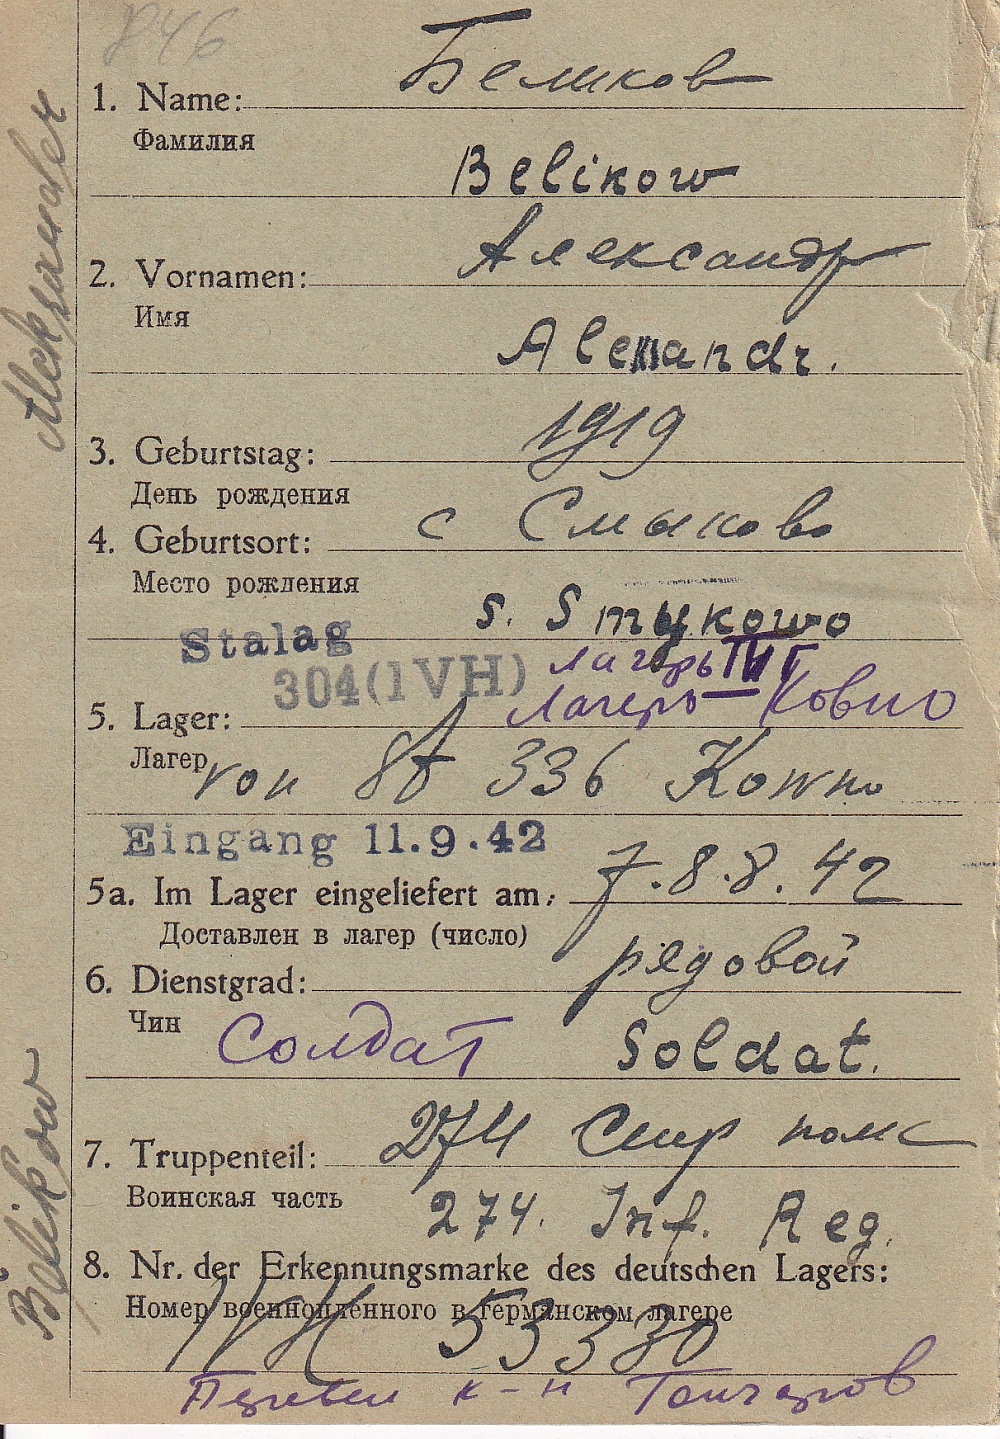 846
Беликов
1. Name:
Фамилия
Belikow
Александр
2. Vornamen:
Имя
Alexandr.
1919
3. Geburtstag:
День рождения
с Смыково
4. Geburtsort:
Место рождения
s. Smykowo
Stalag
304(IVH)
лагерь
Лагерь — Ковно
5. Lager:
Лагер
von 336 Kowno
Eingang 11.9.42
7.8.8.42
5a. Im Lager eingeliefert am:
Доставлен в лагер (число)
рядовой
6. Dienstgrad:
Чин
Солдат Soldat.
274 полк
7. Truppenteil:
Воинская часть
274. Inf. Reg.
8. Nr. der Erkennungsmarke des deutschen Lagers:
Номер военнопленного в германском лагере
IVH 53330
Перевел к-н Гончаров
Belikow Aleksander